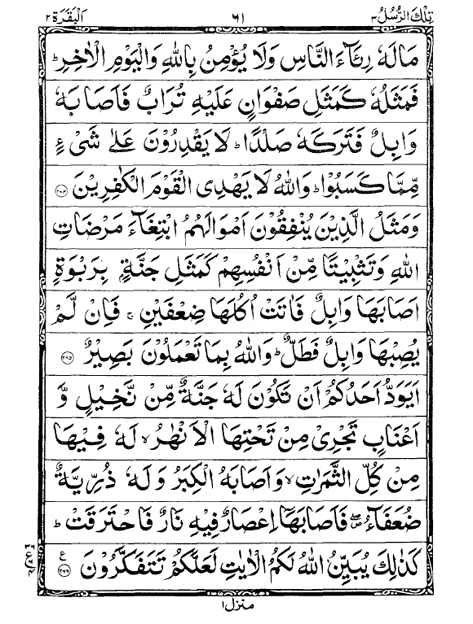 تِلْكَ الرُّسُلُ ٣ ٦١ اَلْبَقَرَة ٢
مَالَهٗ رِئَآءَ النَّاسِ وَلَا يُؤْمِنُ بِاللّٰهِ وَالْيَوْمِ الْاٰخِرِ ؕ
فَمَثَلُهٗ كَمَثَلِ صَفْوَانٍ عَلَيْهِ تُرَابٌ فَاَصَابَهٗ
وَابِلٌ فَتَرَكَهٗ صَلْدًا ؕ لَا يَقْدِرُوْنَ عَلٰى شَىْءٍ
مِّمَّا كَسَبُوْا ؕ وَاللّٰهُ لَا يَهْدِى الْقَوْمَ الْكٰفِرِيْنَ ﴿۲۶۴﴾
وَمَثَلُ الَّذِيْنَ يُنْفِقُوْنَ اَمْوَالَهُمُ ابْتِغَآءَ مَرْضَاتِ
اللّٰهِ وَتَثْبِيْتًا مِّنْ اَنْفُسِهِمْ كَمَثَلِ جَنَّةٍۢ بِرَبْوَةٍ
اَصَابَهَا وَابِلٌ فَاٰتَتْ اُكُلَهَا ضِعْفَيْنِ ۚ فَاِنْ لَّمْ
يُصِبْهَا وَابِلٌ فَطَلٌّ ؕ وَاللّٰهُ بِمَا تَعْمَلُوْنَ بَصِيْرٌ ﴿۲۶۵﴾
اَيَوَدُّ اَحَدُكُمْ اَنْ تَكُوْنَ لَهٗ جَنَّةٌ مِّنْ نَّخِيْلٍ وَّ
اَعْنَابٍ تَجْرِىْ مِنْ تَحْتِهَا الْاَنْهٰرُ ۙ لَهٗ فِيْهَا
مِنْ كُلِّ الثَّمَرٰتِ ۙ وَاَصَابَهُ الْكِبَرُ وَلَهٗ ذُرِّيَّةٌ
ضُعَفَآءُ ۖ فَاَصَابَهَاۤ اِعْصَارٌ فِيْهِ نَارٌ فَاحْتَرَقَتْ ؕ
كَذٰلِكَ يُبَيِّنُ اللّٰهُ لَكُمُ الْاٰيٰتِ لَعَلَّكُمْ تَتَفَكَّرُوْنَ ﴿۲۶۶﴾ ع
منزل ١